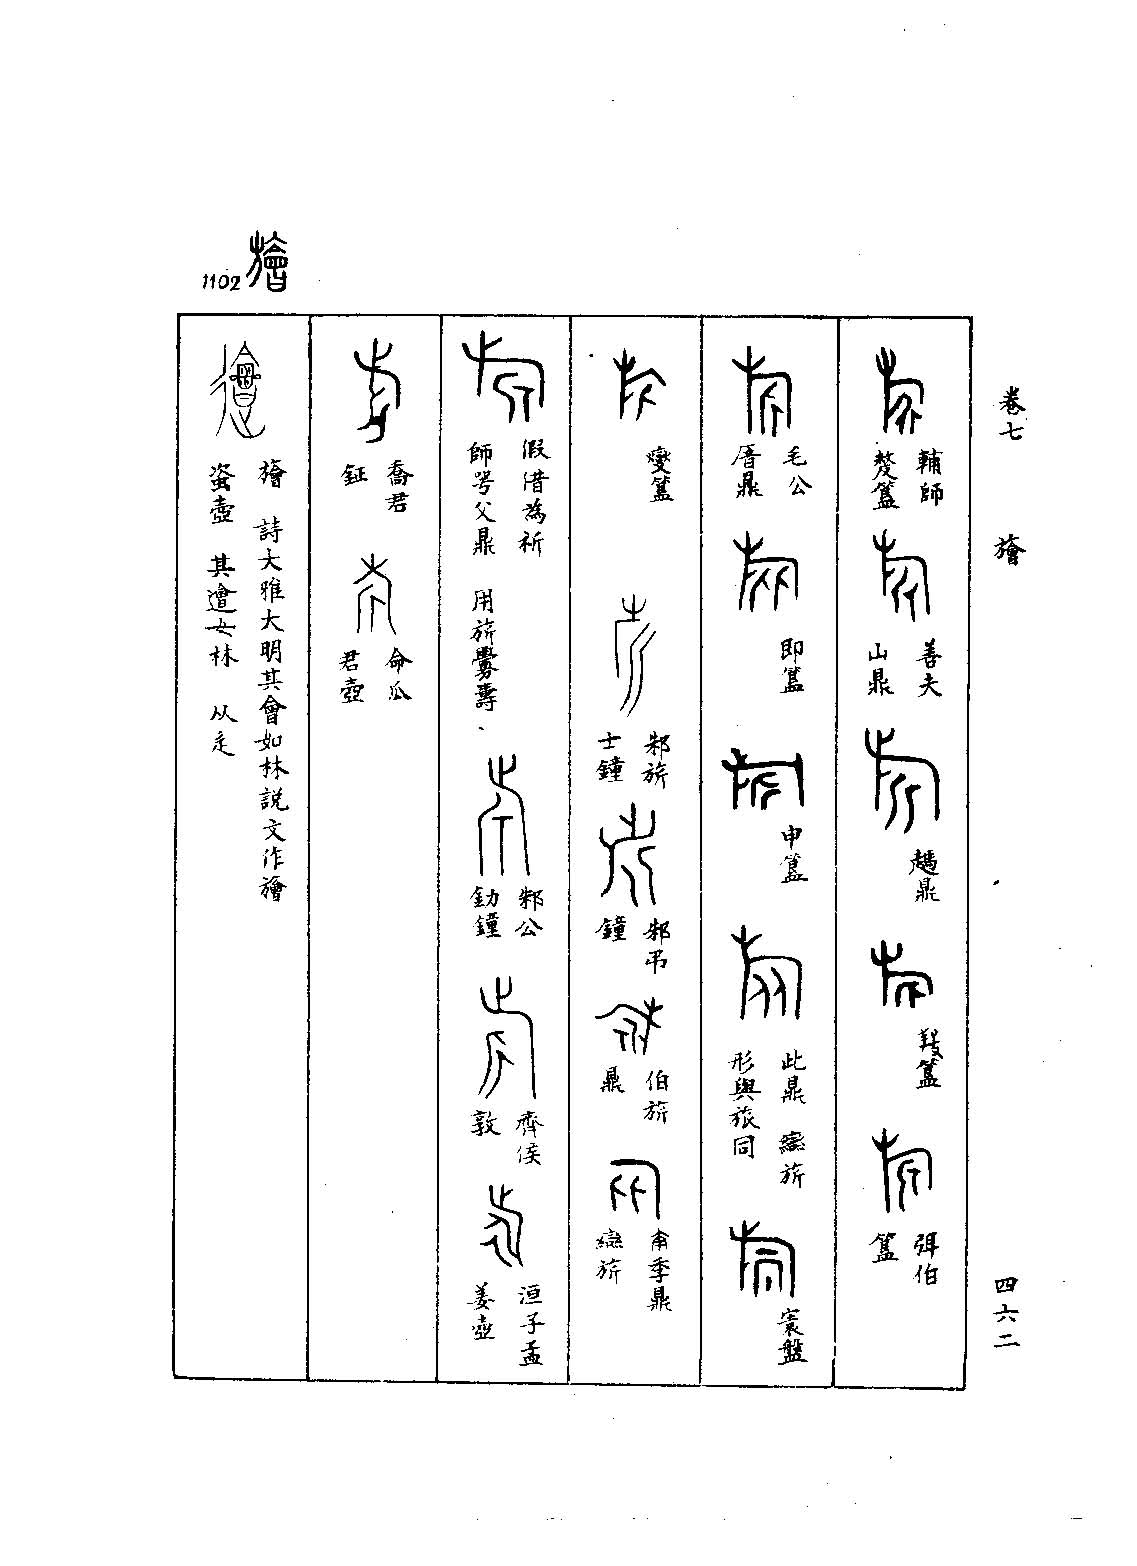 卷七 旝 四六二
輔師嫠簋
善夫山鼎
趞鼎
弭伯簋
毛公㫗鼎
即簋
申簋
此鼎 䜌旂 形與旅同
寰盤
燮簋
邾旂士鐘
邾弔鐘
伯旂鼎
南季鼎 䜌旂
假借為祈 師咢父鼎 用旂釁壽
邾公釛鐘
齊侯敦
洹子孟姜壺
喬君鉦
命瓜君壺
1102 旝
旝 詩大雅大明其會如林說文作旝
𧊒壺 其遭女林 从辵